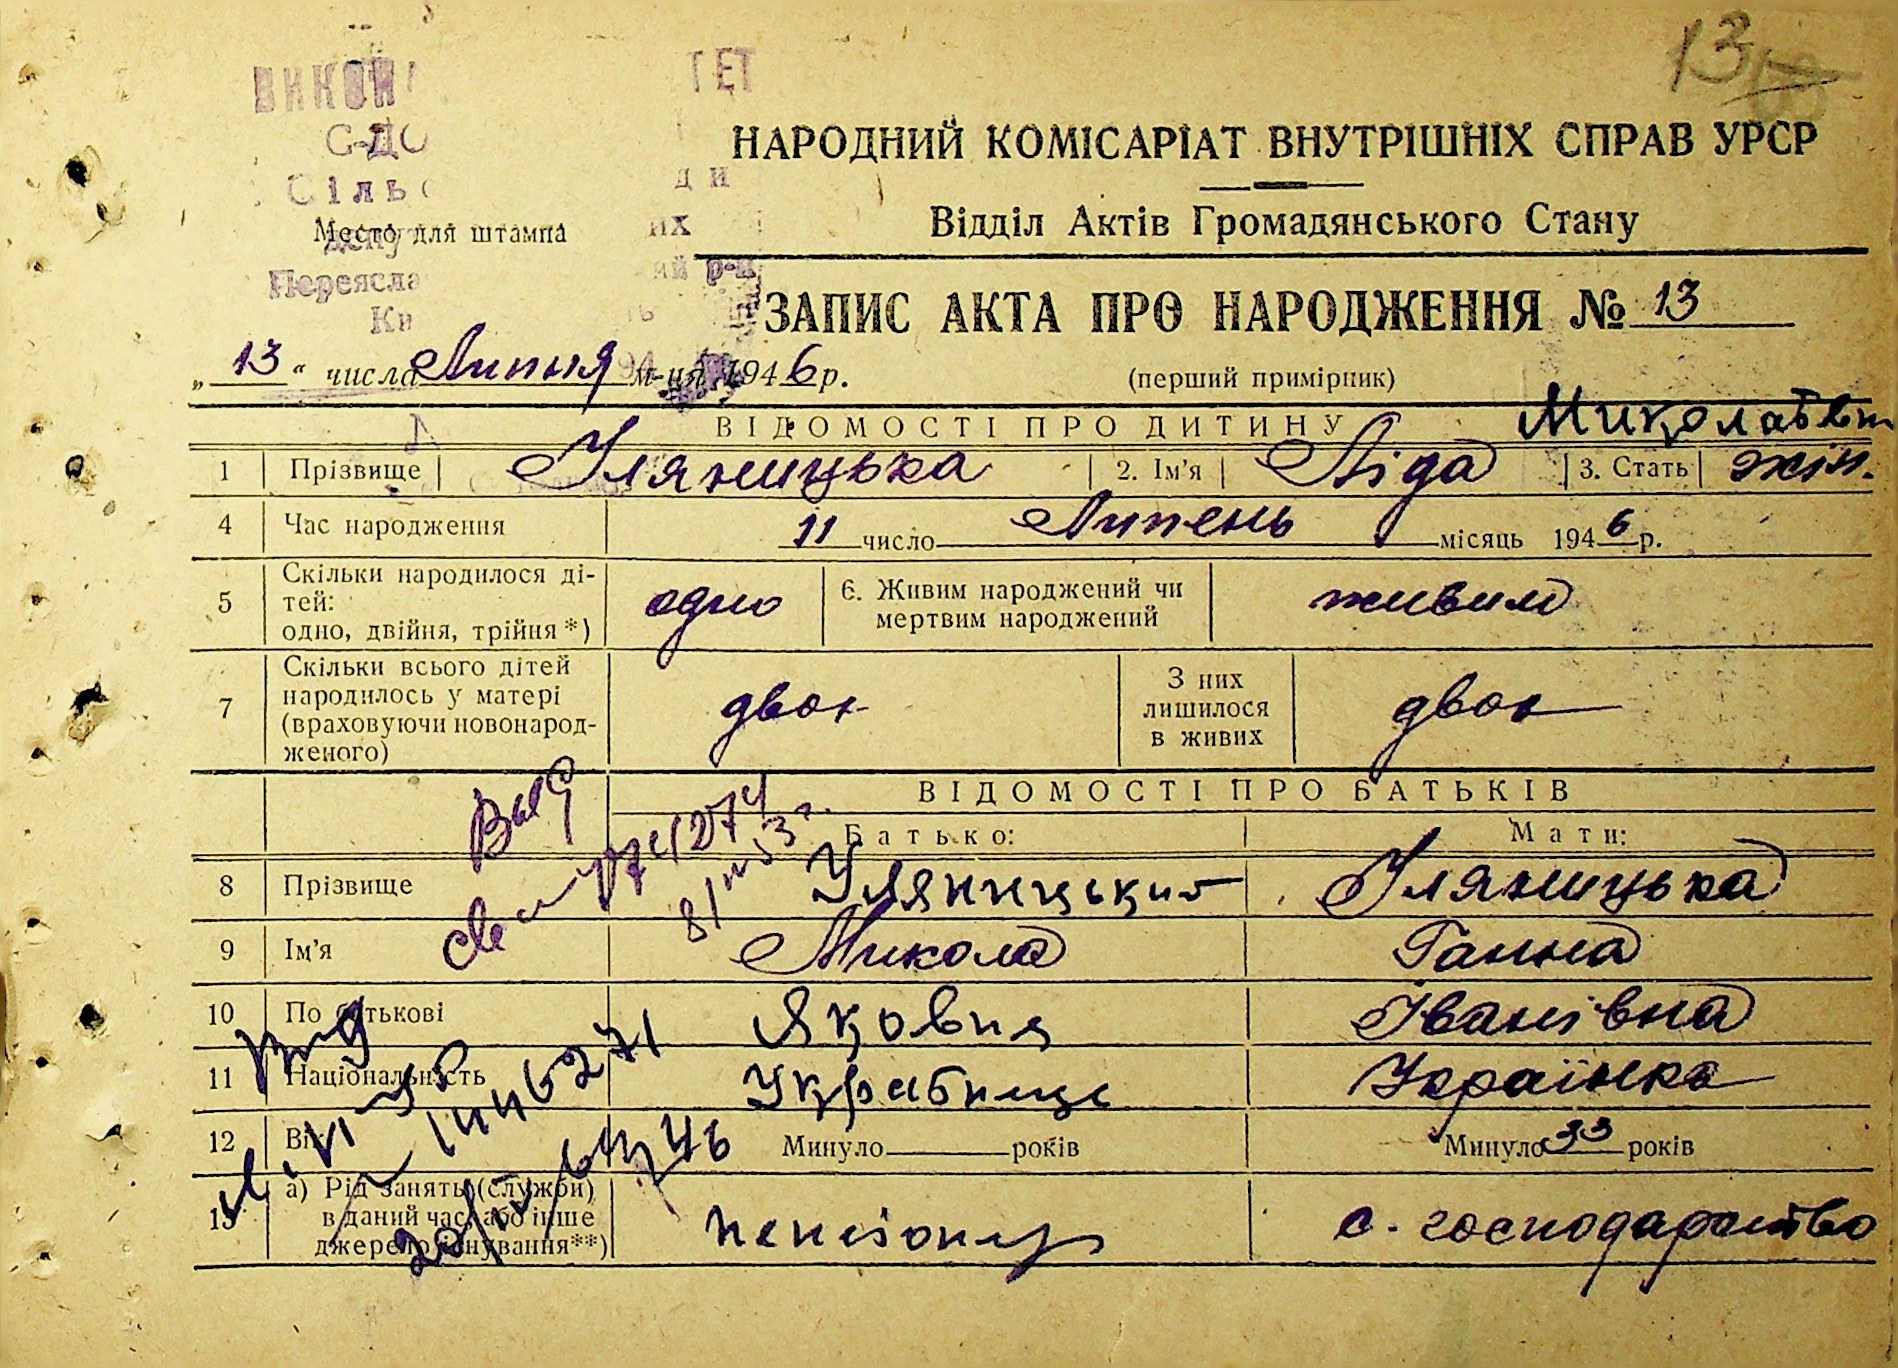 13
ВИКОН ТЕТ
С-ДО
Сільс ди
Место для штампа
их
Перегясла ий р-н
Ки
НАРОДНИЙ КОМІСАРІАТ ВНУТРІШНІХ СПРАВ УРСР
Відділ Актів Громадянського Стану
ЗАПИС АКТА ПРО НАРОДЖЕННЯ № 13
„13" числа Липня м-ця 1946 р.
(перший примірник)
ВІДОМОСТІ ПРО ДИТИНУ
1 Прізвище Уляницька 2. Ім'я Ліда Миколаївн 3. Стать жін.
4 Час народження 11 число Липень місяць 1946 р.
5 Скільки народилося ді-
тей:
одно, двійня, трійня*) одно 6. Живим народжений чи
мертвим народжений живим
7 Скільки всього дітей
народилось у матері
(враховуючи новонарод-
женого) двоє З них
лишилося
в живих двоє
ВІДОМОСТІ ПРО БАТЬКІВ
Батько: Мати:
8 Прізвище Уляницький Уляницька
9 Ім'я Микола Ганна
10 По батькові Якович Іванівна
11 Національність Українець Українка
12 Вік Минуло років Минуло 33 років
13 а) Рід занять (служби)
в даний час або інше
джерело існування**) пенсіонер с. господарство